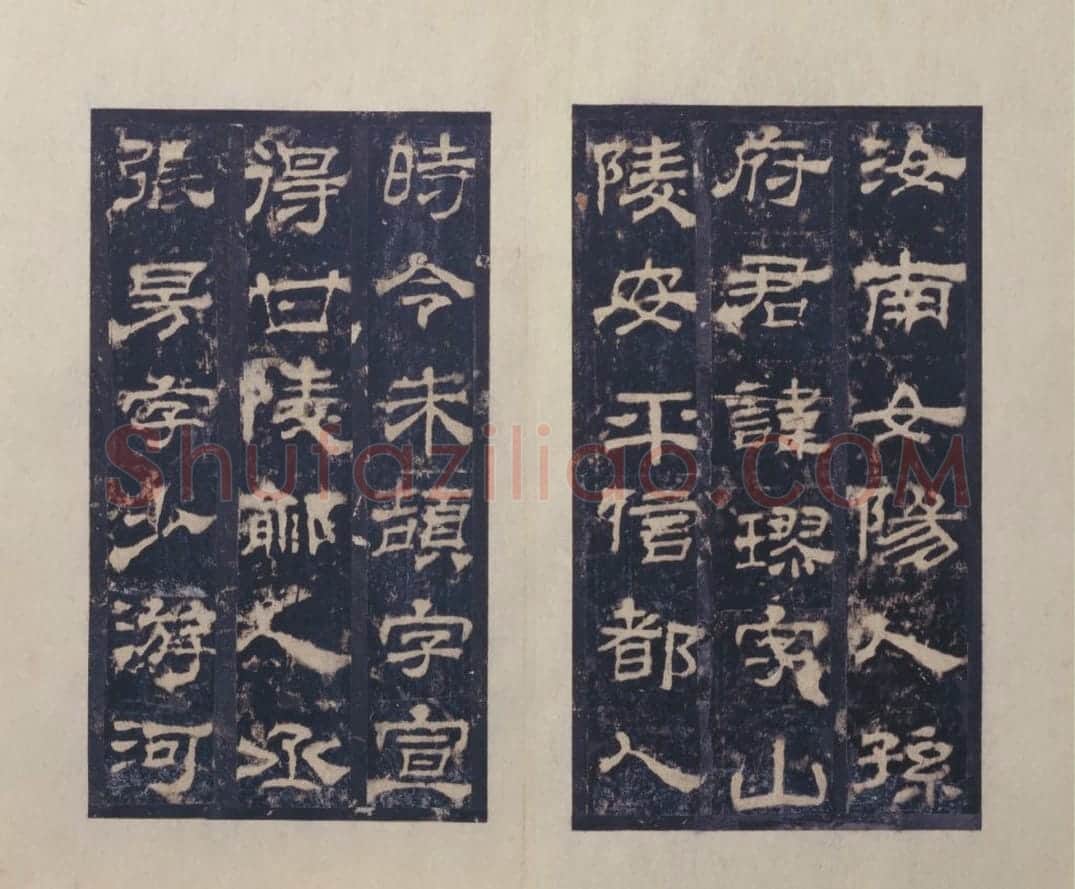 汝南女陽人孫
府君諱璆字山
陵安平信都人
時令朱頡字宣
得甘陵鄃人丞
張昉字少游河
Shufaziliao.COM